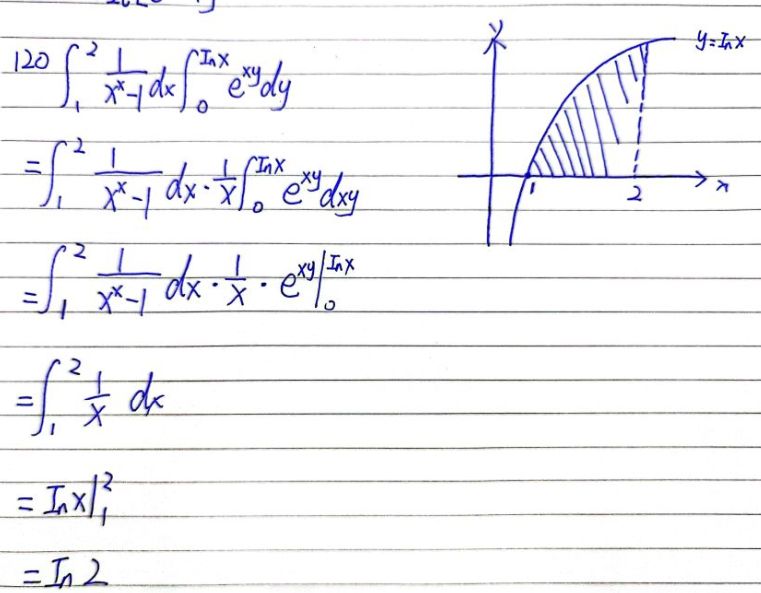 120 ∫₁² 1/(xˣ-1) dx ∫₀^(lnx) e^(xy) dy
= ∫₁² 1/(xˣ-1) dx · 1/x ∫₀^(lnx) e^(xy) dxy
= ∫₁² 1/(xˣ-1) dx · 1/x · e^(xy) |₀^(lnx)
= ∫₁² 1/x dx
= lnx |₁²
= ln2
y
y=lnx
1
2
x